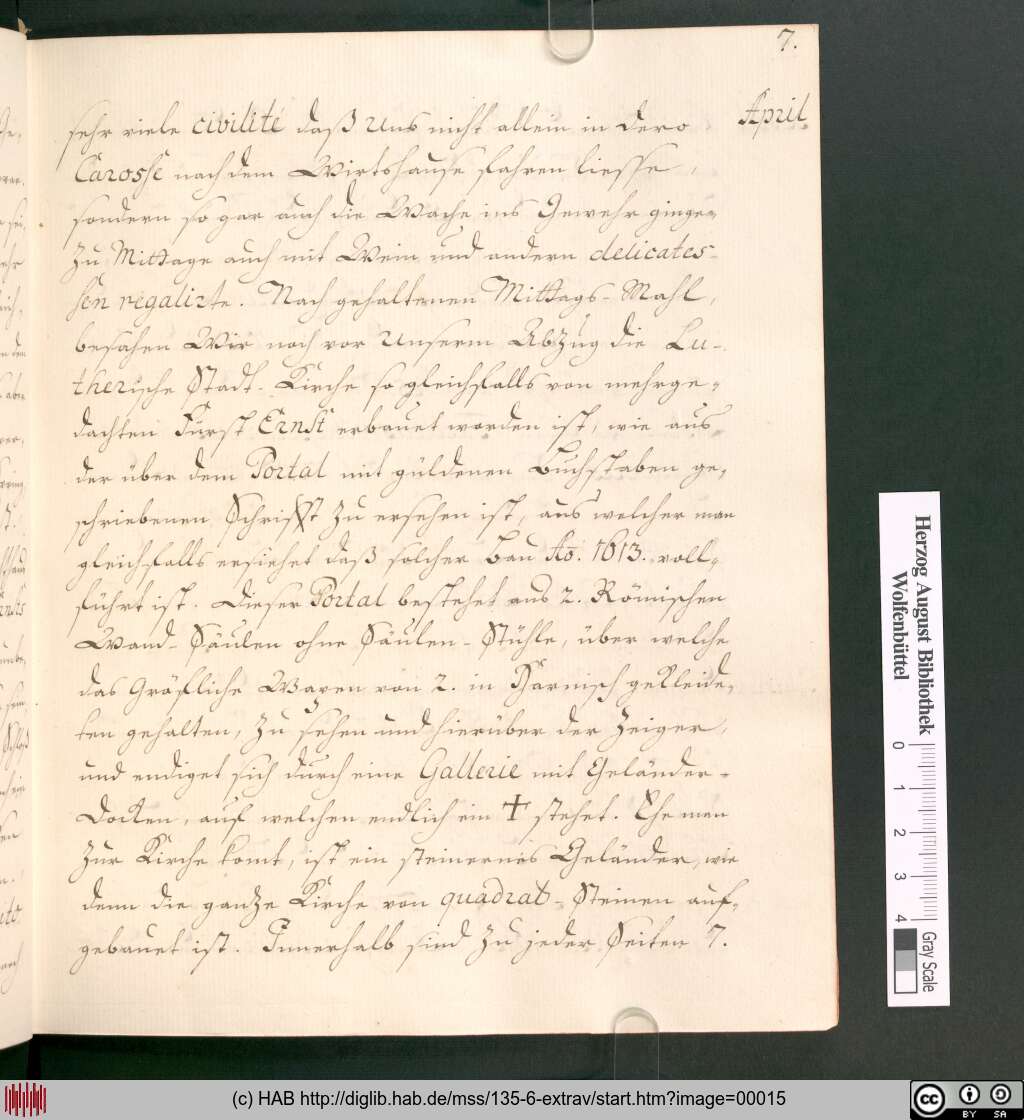 7.
April.
sehr viele civilité daß Uns nicht allein in dero
Carosse nach dem Wirtshause fahren liesse,
sondern so gar auch die Wache ins Gewehr ginge,
zu Mittage auch mit Wein und andern delicates-
sen regalirte. Nach gehaltenen Mittags-Mahl,
besahen Wir noch vor Unserm Abzug die Lu-
therische Stadt-Kirche so gleichfalls von mehrge-
dachten Fürst Ernst erbauet worden ist, wie aus
der über dem Portal mit güldenen Buchstaben ge-
schriebenen Schrifft zu ersehen ist, aus welcher man
gleichfalls ersiehet daß solcher Bau Ao. 1613. voll-
führt ist. Dieser Portal bestehet aus 2. Römischen
Wand-Säulen ohne Säulen-Stühle, über welche
das Gräfliche Wapen von 2. in Harnisch gekleide-
ten gehalten, zu sehen und hierüber der Zeiger,
und endiget sich durch eine Gallerie mit Geländer-
Docken, auf welchen endlich ein † stehet. Ehe man
zur Kirche komt, ist ein steinernes Geländer, wie
denn die gantze Kirche von quadrat-Steinen auf-
gebauet ist. Innerhalb sind zu jeder Seiten 7.
Herzog August Bibliothek
Wolfenbüttel
0 1 2 3 4
Gray Scale
(c) HAB http://diglib.hab.de/mss/135-6-extrav/start.htm?image=00015
cc BY SA